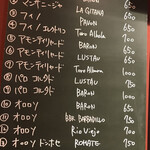 マンサニージャ LA GITANA 650
② フィノ PAVON 650
④ フィノ エレクトリコ Toro Albalá 650
⑤ アモンティリャード BARON 650
⑥ アモンティリャード LUSTAU 750
⑦ アモンティリャード Toro Albala 1000
⑧ パロ コルタド LUSTAU 700
⑨ パロ コルタド BARON 1000
⑩ オロロソ BARON 650
⑪ オロロソ BBR. BARBADILLO 750
⑫ オロロソ Rio Viejo 700
オロロソ ドン ホセ ROMATE 750